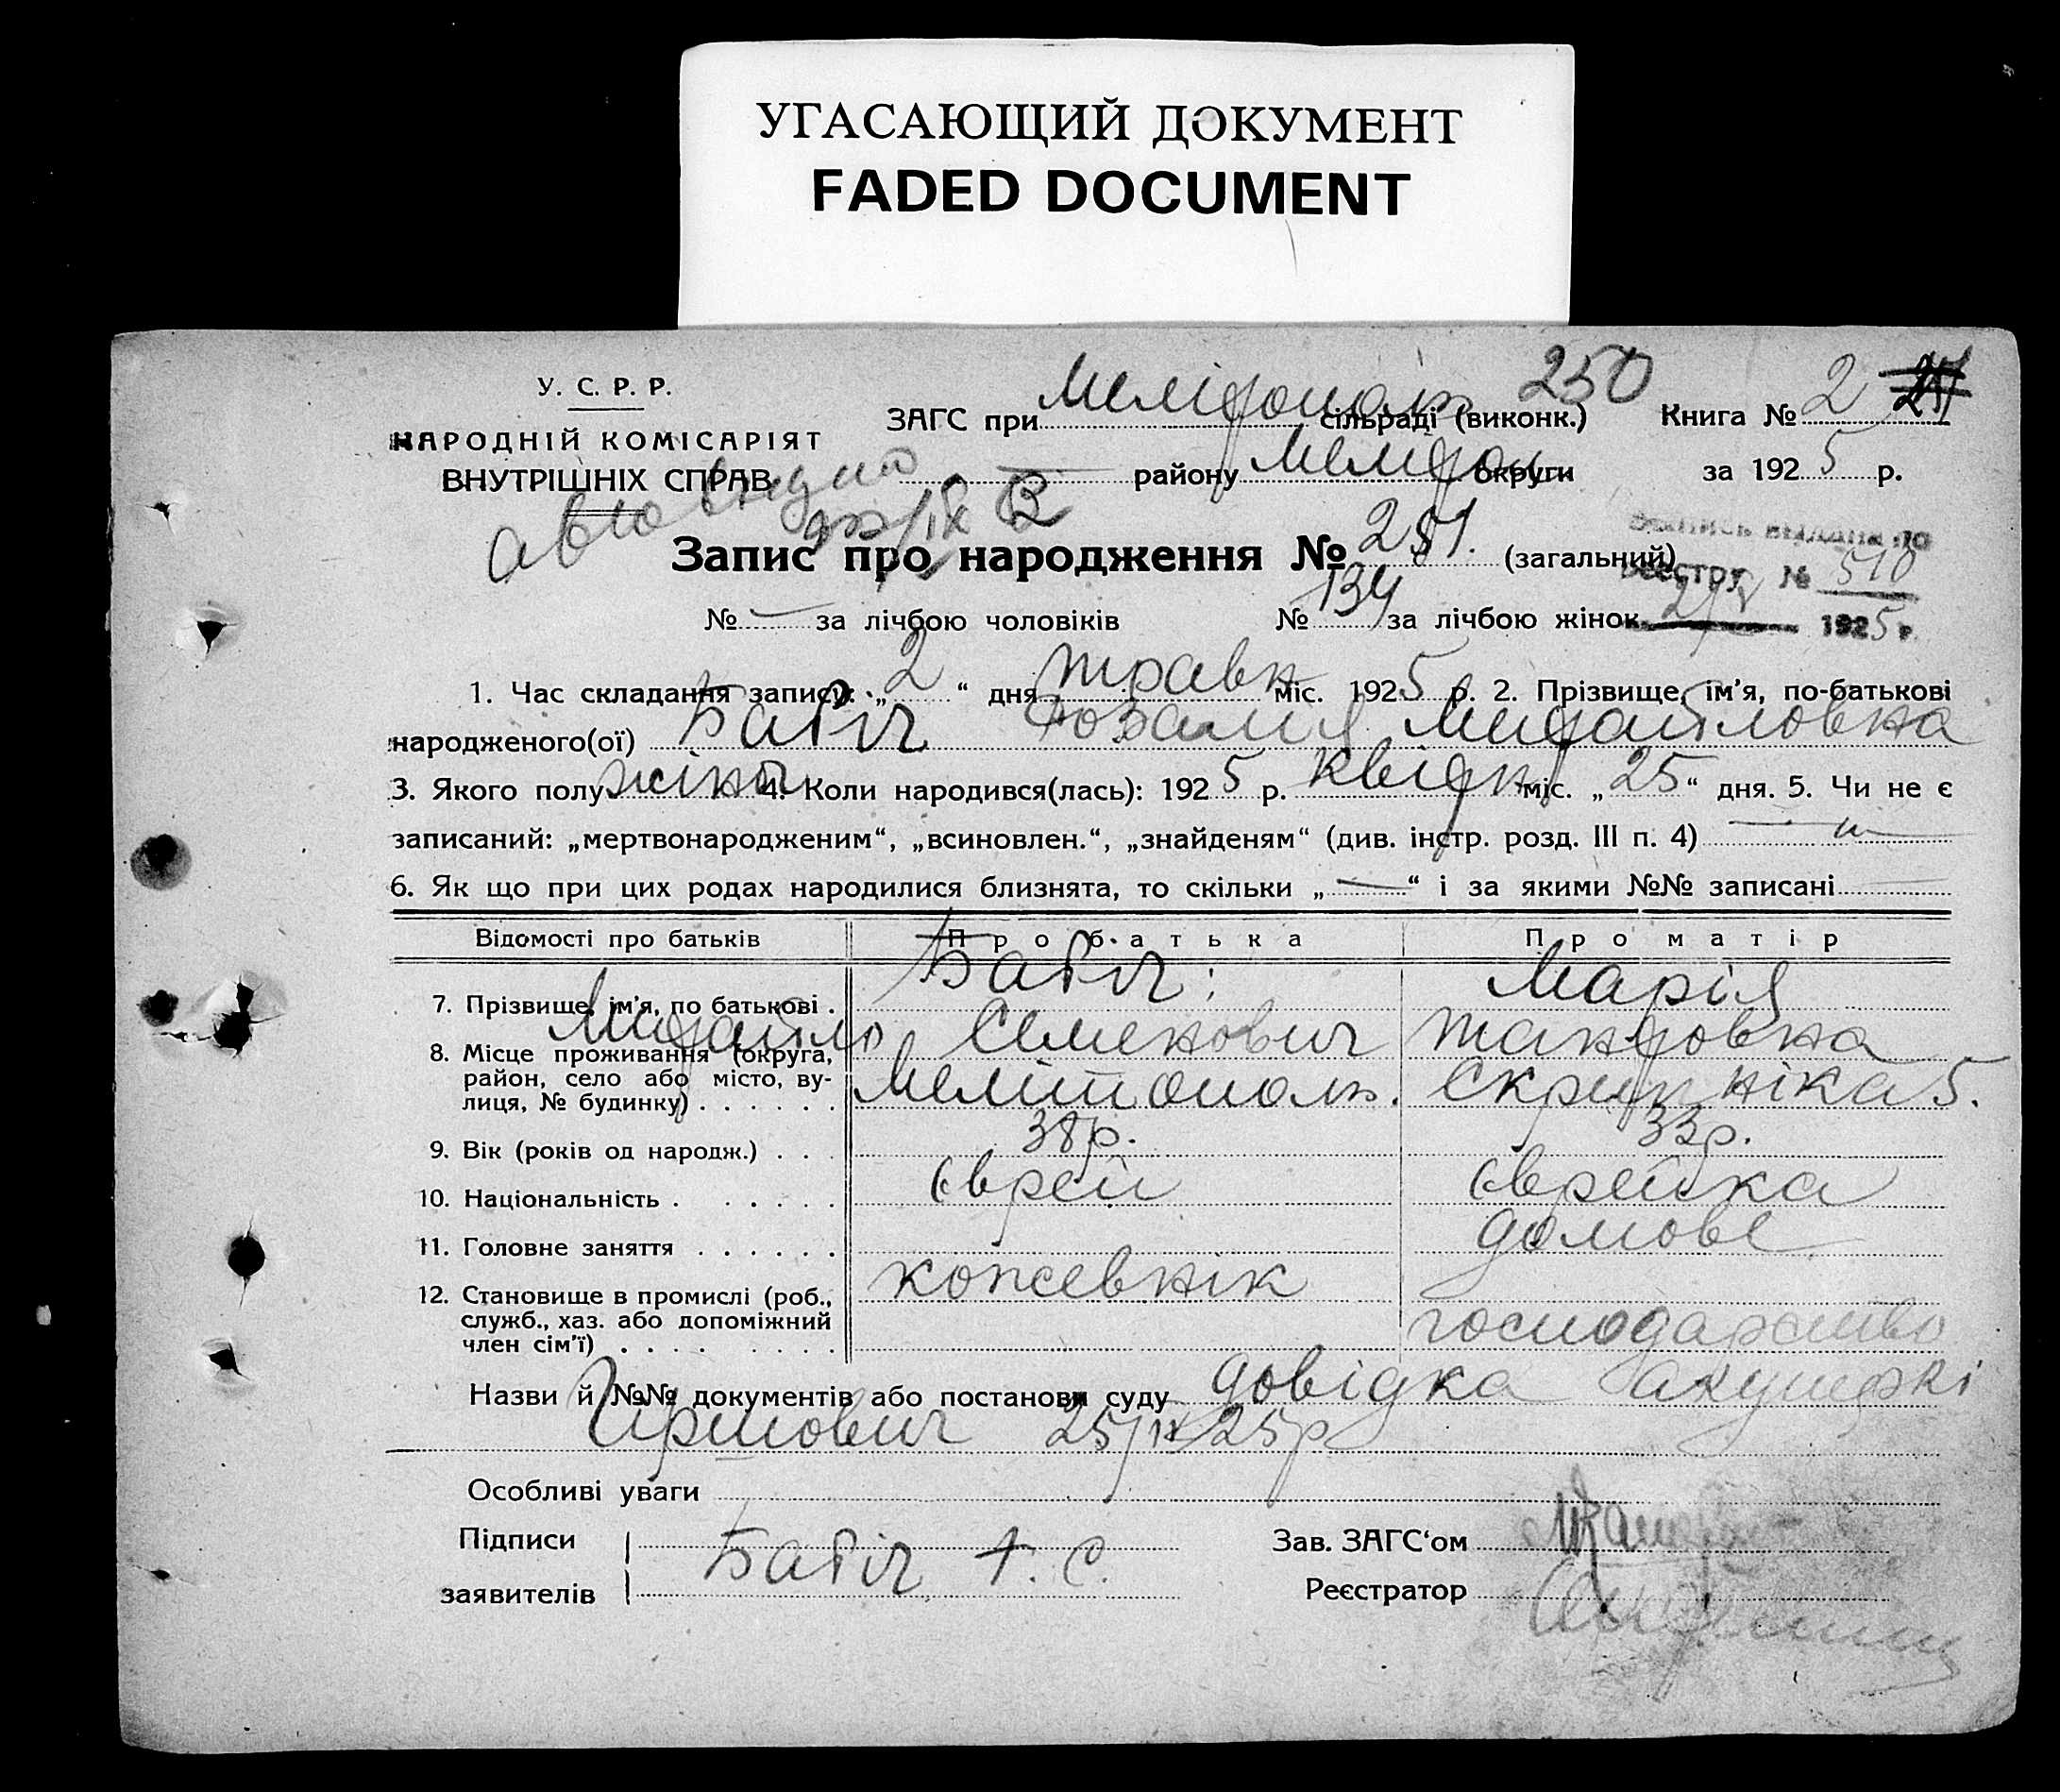 УГАСАЮЩИЙ ДОКУМЕНТ
FADED DOCUMENT
У. С. Р. Р.
НАРОДНІЙ КОМІСАРІЯТ
ВНУТРІШНІХ СПРАВ
250
ЗАГС при сільраді (виконк.) Книга № 2
району округи за 1925 р.
Запис про народження № 251. (загальний)
реестру № 510
№ — за лічбою чоловіків № 134 за лічбою жінок
1925 г.
1. Час складання запису: „2“ дня травн міс. 1925 р. 2. Прізвище, ім'я, по-батькові
народженого(ої) Бабіч Розалия Михайловна
3. Якого полу жіноч 4. Коли народився(лась): 1925 р. квідня міс. „25“ дня. 5. Чи не є
записаний: „мертвонародженим“, „всиновлен.“, „знайденям“ (див. інстр. розд. III п. 4) —
6. Як що при цих родах народилися близнята, то скільки „—“ і за якими №№ записані
Відомості про батьків Про батька Про матір
7. Прізвище, ім'я, по батькові . Бабіч; Марія
Михайло Семенович
8. Місце проживання (округа,
район, село або місто, ву-
лиця, № будинку) . . . . . . Мелітополь. Скрипніка 5.
9. Вік (років од народж.) . . . 38р. 33р.
10. Національність . . . . . . Єврей Єврейка
11. Головне заняття . . . . . . домове
кожевнік
12. Становище в промислі (роб.,
служб., хаз. або допоміжний
член сім'ї) . . . . . . . . господарство
Назви й №№ документів або постанови суду довідка акушеркі
Гиршович 25/IV 25р
Особливі уваги
Підписи
заявителів Бабіч
Зав. ЗАГС'ом
Реєстратор